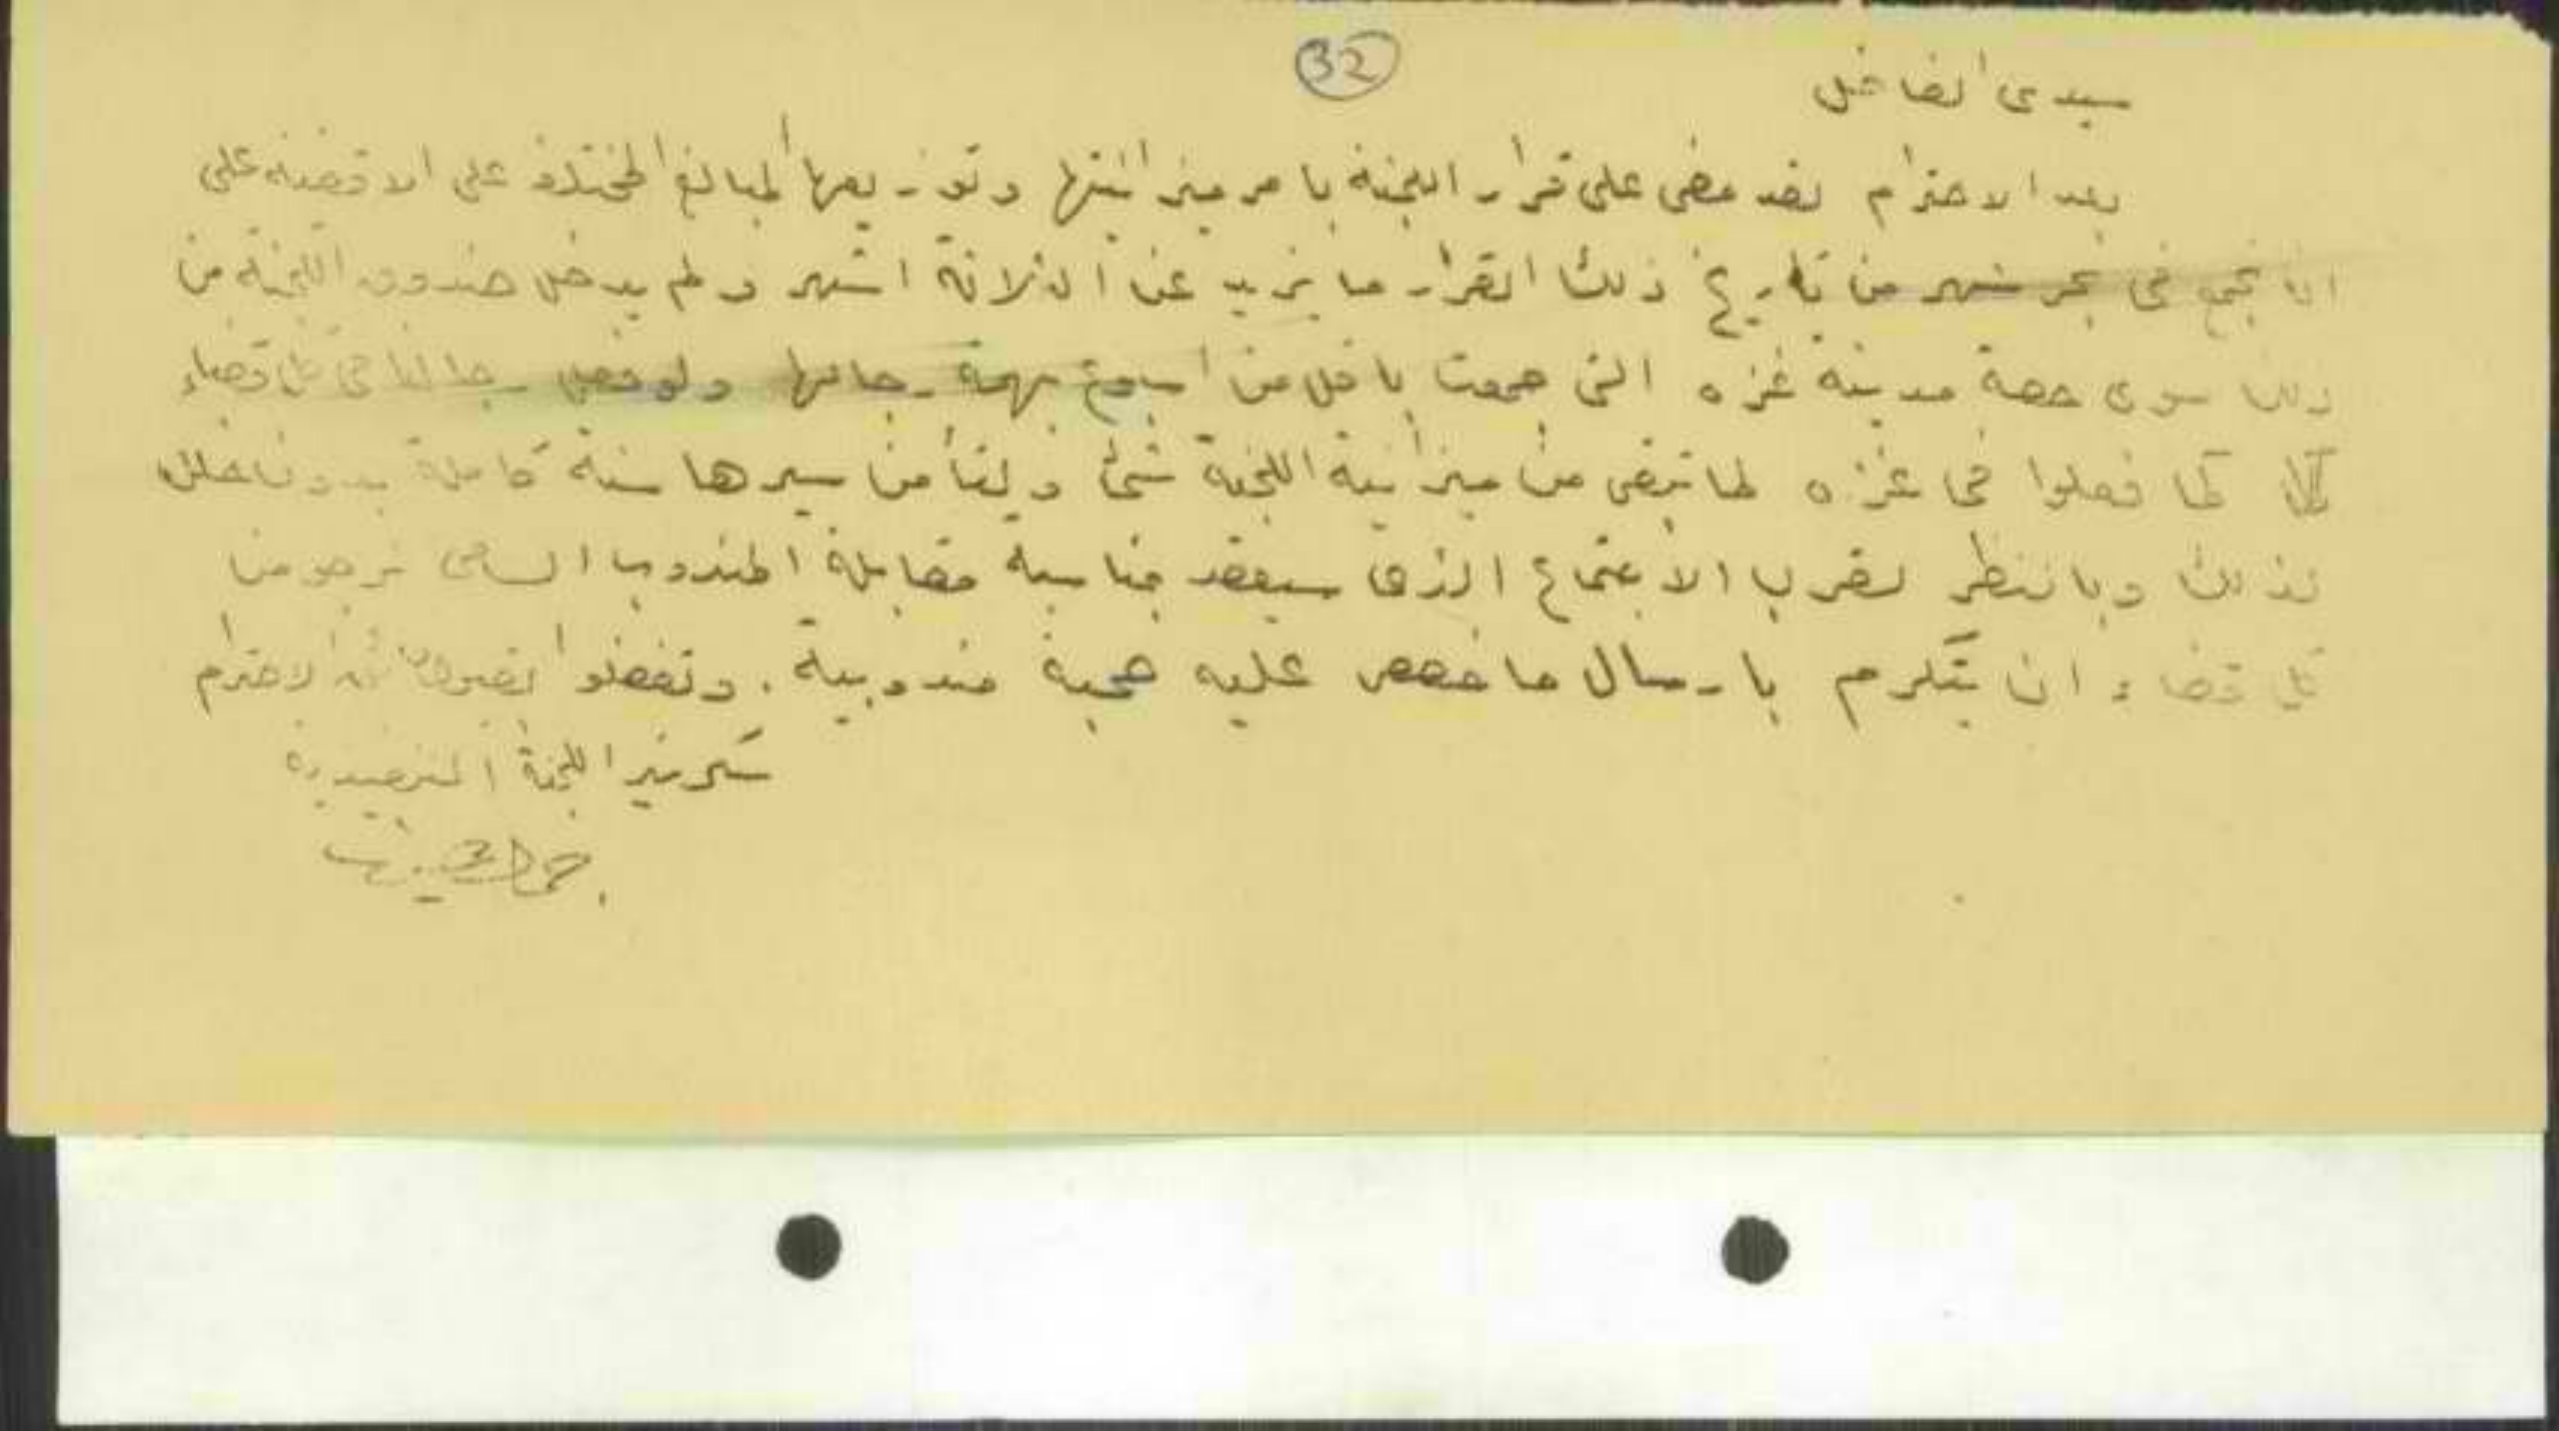 32
سيدى الفاضل
بعد الاحترام لقد مضى على قرار اللجنة بامر ميزانيتها وتوزيعها المبالغ المختلفة على الاقضية على
ان تجمع فى بحر شهر من تاريخ ذلك القرار ما يزيد عن الثلاثة اشهر ولم يدخل صندوق اللجنة من
ذلك سوى حصة مدينة غزه التى جمعت باقل من اسبوع بهمة رجالها ولو فعل رجالنا فى كل قضاء
كما فعلوا فى غزه لما تبقى من ميزانية اللجنة شئ ولتأمن سيرها سنة كاملة بدون خلل
لذلك وبالنظر لقرب الاجتماع الذى سيعقد بمناسبة مقابلة المندوب السامى نرجو من
كل قضاء ان يتكرم بارسال ما خصص عليه صحبة مندوبيه . وتفضلوا بقبول فائق الاحترام
سكرتير اللجنة التنفيذية
جمال الحسينى